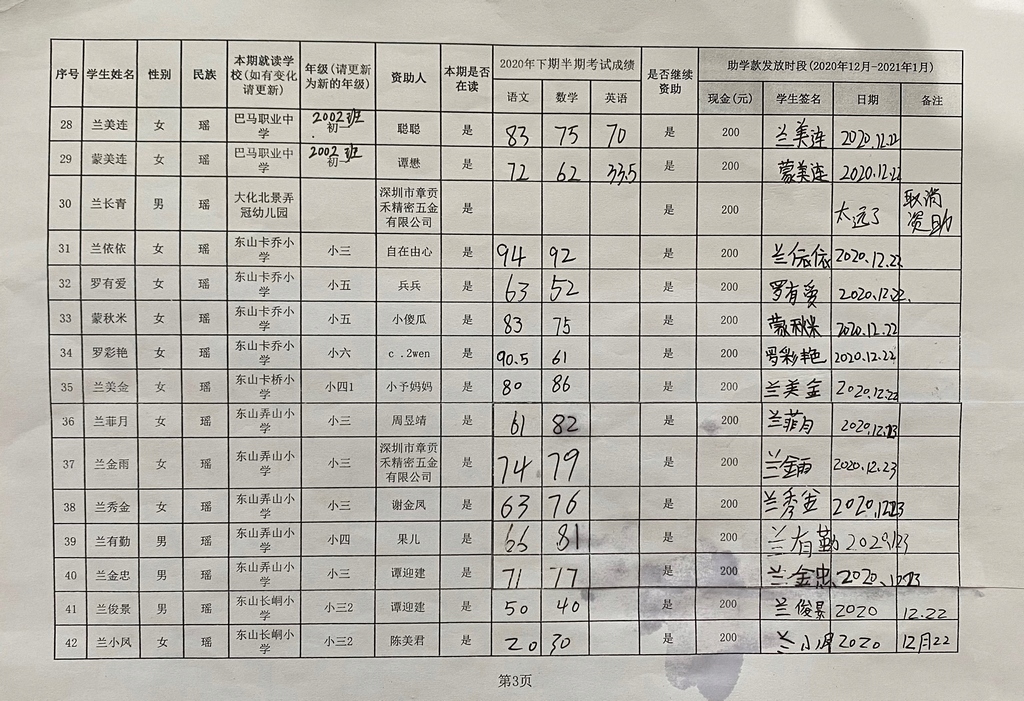 序号 学生姓名 性别 民族 本期就读学校(如有变化请更新) 年级(请更新为新的年级) 资助人 本期是否在读 2020年下期半期考试成绩 是否继续资助 助学款发放时段(2020年12月-2021年1月)
语文 数学 英语 现金(元) 学生签名 日期 备注
28 兰美连 女 瑶 巴马职业中学 初一 2002班 聪聪 是 83 75 70 是 200 兰美连 2020.12.22
29 蒙美连 女 瑶 巴马职业中学 初一 2002班 谭懋 是 72 62 33.5 是 200 蒙美连 2020.12.22
30 兰长青 男 瑶 大化北景弄冠幼儿园 深圳市章贡禾精密五金有限公司 是 是 200 太远了 取消资助
31 兰依依 女 瑶 东山卡乔小学 小三 自在由心 是 94 92 是 200 兰依依 2020.12.22
32 罗有爱 女 瑶 东山卡乔小学 小五 兵兵 是 63 52 是 200 罗有爱 2020.12.22.
33 蒙秋米 女 瑶 东山卡乔小学 小五 小傻瓜 是 83 75 是 200 蒙秋米 2020.12.22
34 罗彩艳 女 瑶 东山卡乔小学 小六 c .2wen 是 90.5 61 是 200 罗彩艳 2020.12.22
35 兰美金 女 瑶 东山卡桥小学 小四1 小予妈妈 是 80 86 是 200 兰美金 2020.12.22
36 兰菲月 女 瑶 东山弄山小学 小三 周昱靖 是 61 82 是 200 兰菲月 2020.12.23
37 兰金雨 女 瑶 东山弄山小学 小三 深圳市章贡禾精密五金有限公司 是 74 79 是 200 兰金雨 2020.12.23
38 兰秀金 女 瑶 东山弄山小学 小三 谢金凤 是 63 76 是 200 兰秀金 2020.12.23
39 兰有勤 男 瑶 东山弄山小学 小四 果儿 是 66 81 是 200 兰有勤 2020.123
40 兰金忠 男 瑶 东山弄山小学 小三 谭迎建 是 71 77 是 200 兰金忠 2020.12.23
41 兰俊景 男 瑶 东山长峒小学 小三2 谭迎建 是 50 40 是 200 兰俊景 2020 12.22
42 兰小凤 女 瑶 东山长峒小学 小三2 陈美君 是 20 30 是 200 兰小凤 2020 12月22
第3页